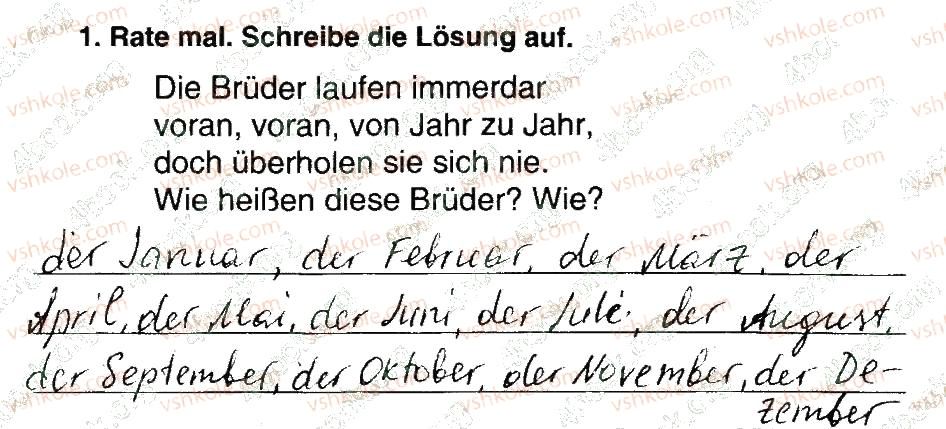 1. Rate mal. Schreibe die Lösung auf.
Die Brüder laufen immerdar
voran, voran, von Jahr zu Jahr,
doch überholen sie sich nie.
Wie heißen diese Brüder? Wie?
der Januar, der Februar, der März, der
April, der Mai, der Juni, der Juli, der August,
der September, der Oktober, der November, der De-
zember